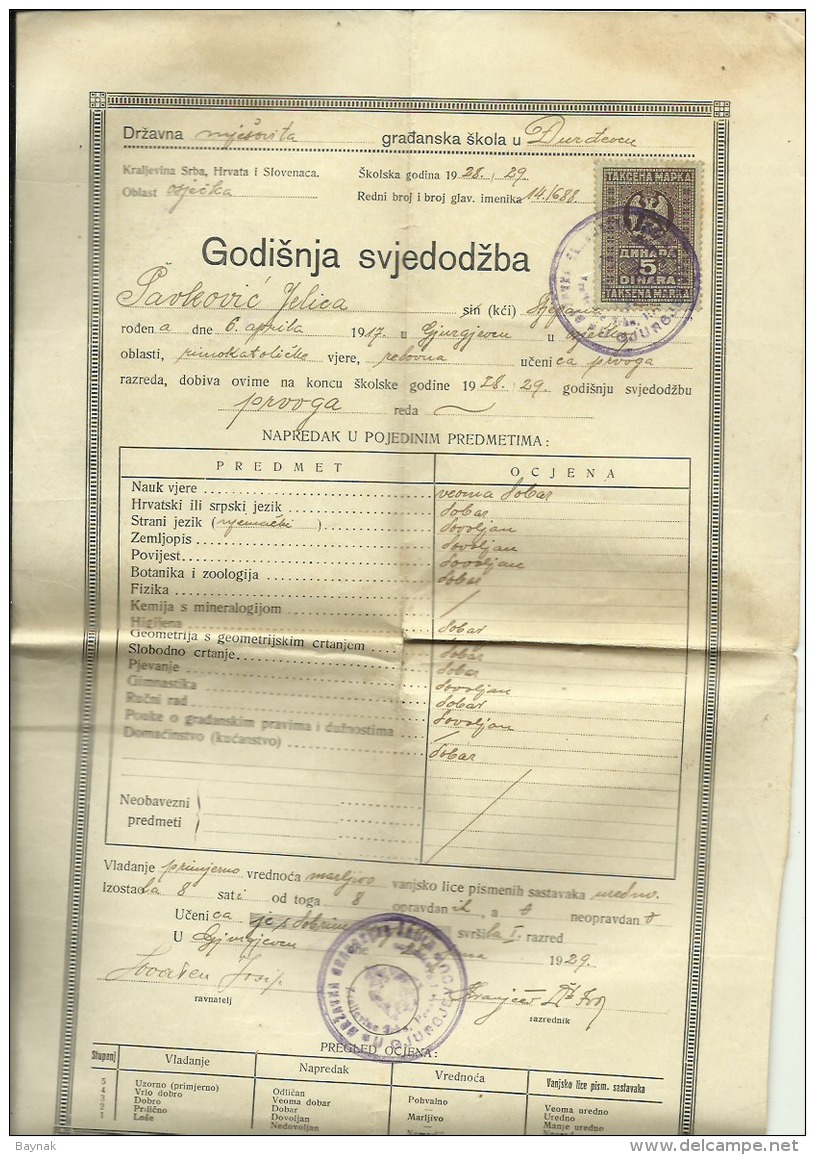 Državna mješovita građanska škola u Đurđevcu
Kraljevina Srba, Hrvata i Slovenaca. Školska godina 1928./29.
Oblast osječka Redni broj i broj glav. imenika 14./688.
ТАКСЕНА МАРКА
ДИНАРА
5
DINARA
TAKSENA MARKA
Godišnja svjedodžba
Pavković Jelica sin (kći) Stjepana
rođena dne 6. aprila 1917. u Gjurgjevcu u osječkoj
oblasti, rimokatoličke vjere, redovna učenica prvoga
razreda, dobiva ovime na koncu školske godine 1928./29. godišnju svjedodžbu
prvoga reda
NAPREDAK U POJEDINIM PREDMETIMA:
PREDMET OCJENA
Nauk vjere veoma dobar
Hrvatski ili srpski jezik dobar
Strani jezik (njemački) dovoljan
Zemljopis dovoljan
Povijest dovoljan
Botanika i zoologija dobar
Fizika /
Kemija s mineralogijom
Higijena dobar
Geometrija s geometrijskim crtanjem dobar
Slobodno crtanje dobar
Pjevanje dovoljan
Gimnastika dobar
Ručni rad dovoljan
Pouke o građanskim pravima i dužnostima /
Domaćinstvo (kućanstvo) dobar
Neobavezni
predmeti
Vladanje primjerno vrednoća marljivo vanjsko lice pismenih sastavaka uredno.
Izostala 8 sati od toga 8 opravdanih, a 0 neopravdano
Učenica je s dobrim svršila I. razred
U Gjurgjevcu 1929.
Josip
ravnatelj razrednik
U GJURGJEVCU
PREGLED OCJENA:
Stupanj Vladanje Napredak Vrednoća Vanjsko lice pism. sastavaka
5 Uzorno (primjerno) Odličan Pohvalno Veoma uredno
4 Vrlo dobro Veoma dobar — Uredno
3 Dobro Dobar Marljivo Manje uredno
2 Prilično Dovoljan —
1 Loše Nedovoljan
Baynak
delcampe.net